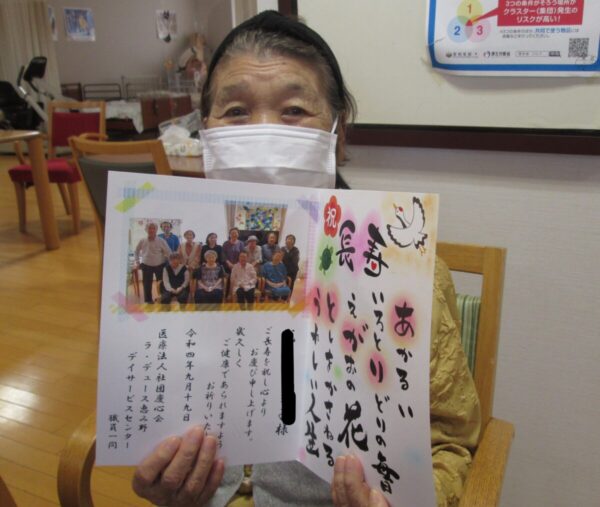 3つの条件がそろう場所が
クラスター(集団)発生の
リスクが高い!
1
2
3
厚生労働省
祝
長寿
あかるい
いろとりどりの
えがおの花
としをかさねる
うれしい人生
様
ご長寿を祝し心より
お慶び申し上げます。
幾久しく
ご健康であられますよう
お祈りいたし
令和四年九月十九日
医療法人社団慶心会
ラ・デュース恵み野
デイサービスセンター
職員一同